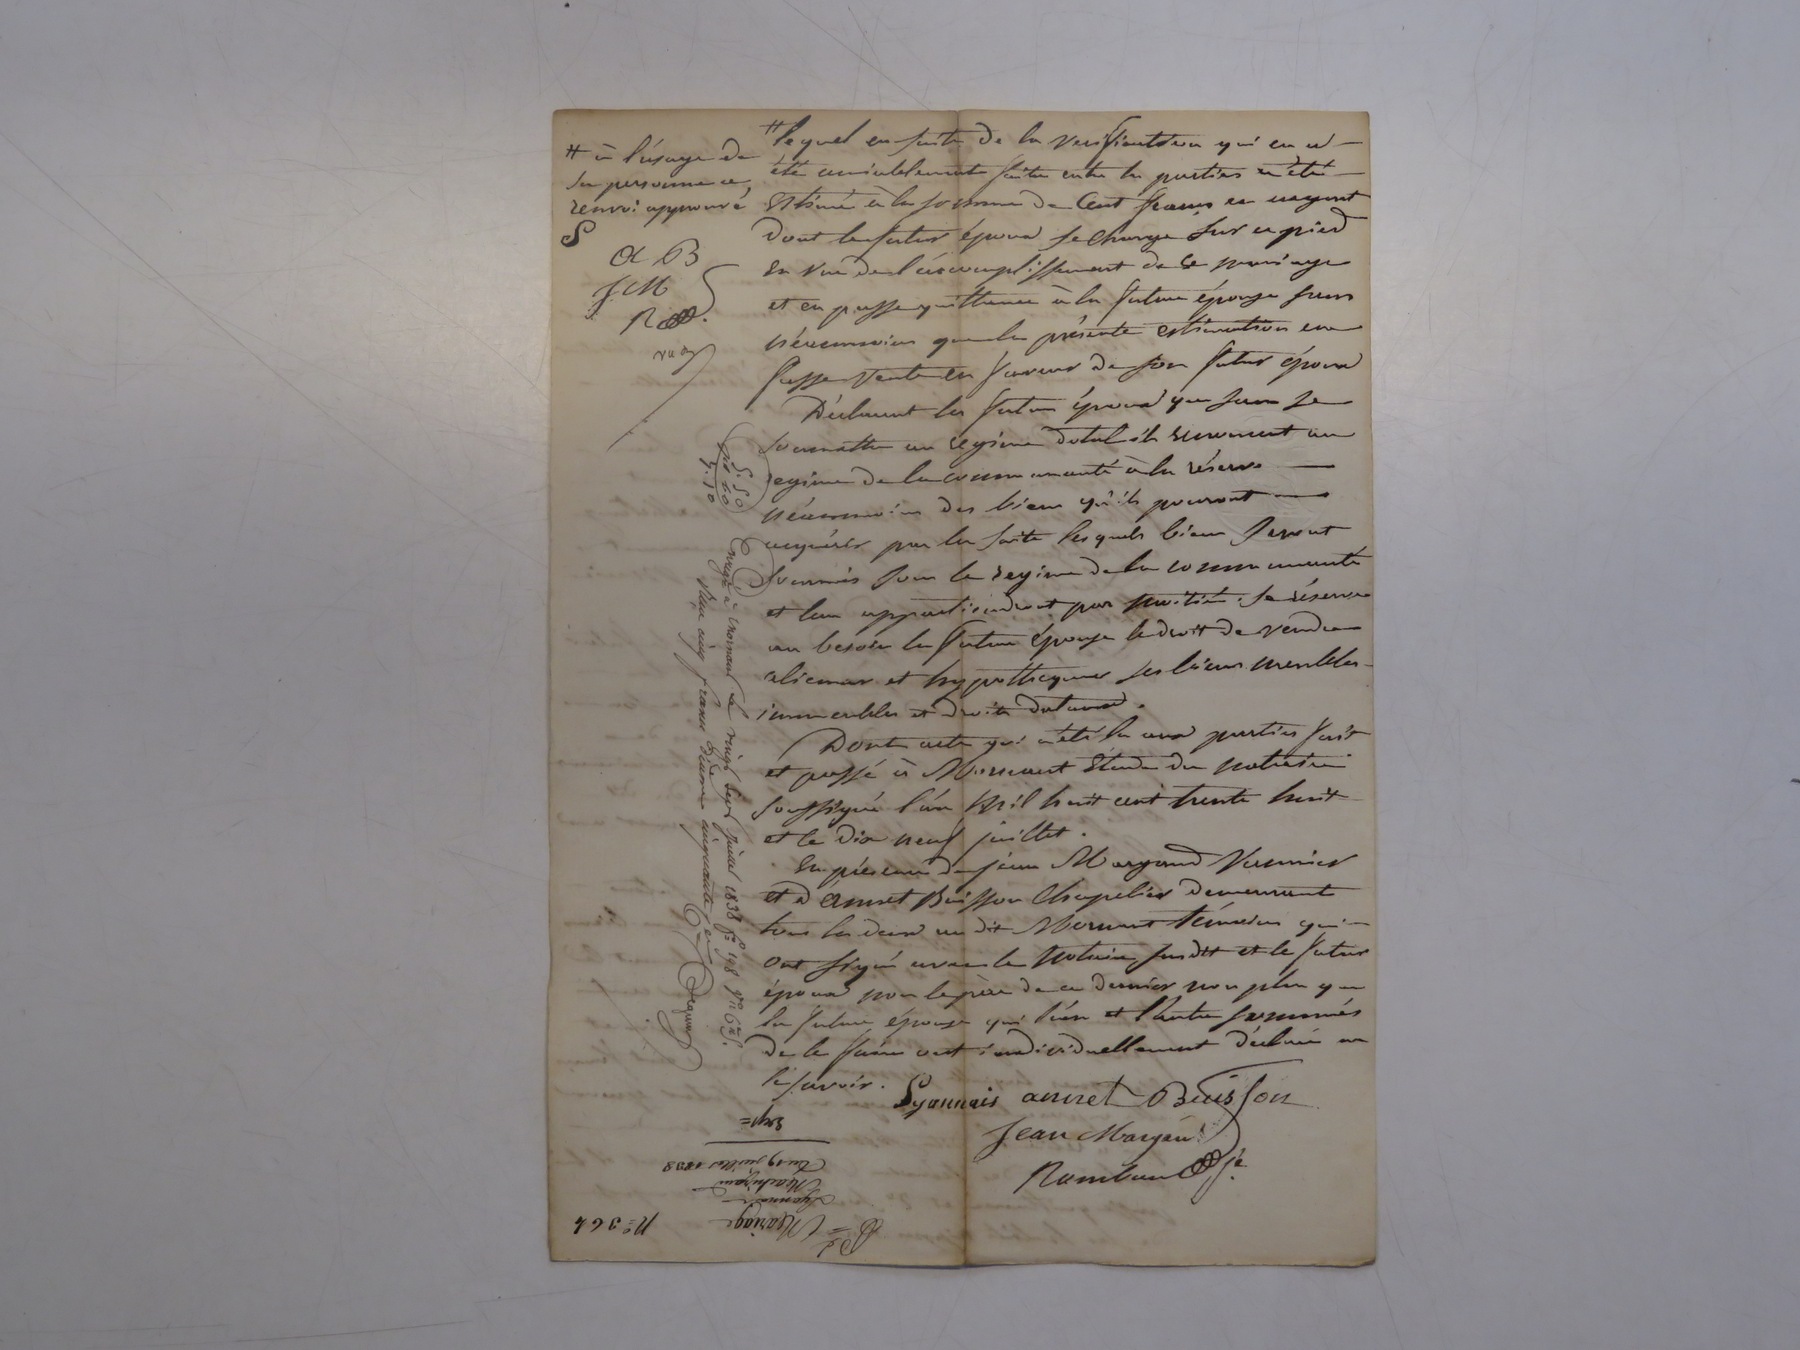 # à l'usage de
sa personne ce
renvoi approuvé
S
A B
J M
R
# lequel en suite de la verification qui en a
été amiablement faite entre les parties a été
estimé à la somme de Cent francs en argent
dont le futur époux se charge sur ce pied
en vue de l'accomplissement de ce mariage
et en passe quittance à la future épouse sans
néanmoins que la présente estimation en
fasse vente en faveur de son futur époux
Déclarent les futurs époux que sans se
soumettre au regime dotal ils renoncent au
regime de la communauté à la réserve
néanmoins des biens qu'ils pourront
acquérir par la suite lesquels biens seront
soumis sous le regime de la communauté
et leur appartiendront par moitié. Se réserve
au besoin la future épouse le droit de vendre
aliener et hypothequer ses biens meubles
immeubles et droits dotaux.
Dont acte qui a été lu aux parties fait
et passé à Mornant Etude du notaire
soussigné l'an mil huit cent trente huit
et le dix neuf juillet.
En présence de jean Margand Vannier
et d'annet Buisson Chapelier demeurant
tous les deux au dit Mornant témoins qui
ont signé avec le Notaire susdit et le futur
époux non le père de ce dernier non plus que
la future épouse qui l'un et l'autre sommés
de le faire ont individuellement déclaré ne
le savoir.
Lyonnais annet Buisson
Jean Margand
Rambaud
5. 50
55
Enregé à mornant le vingt sept juillet 1838 f° 198 v° C 6 7 S.
Reçu cinq francs dixme cinquante cent
N° 364
Mariage
Lyonnais
Du 19 juillet 1838
Exp=